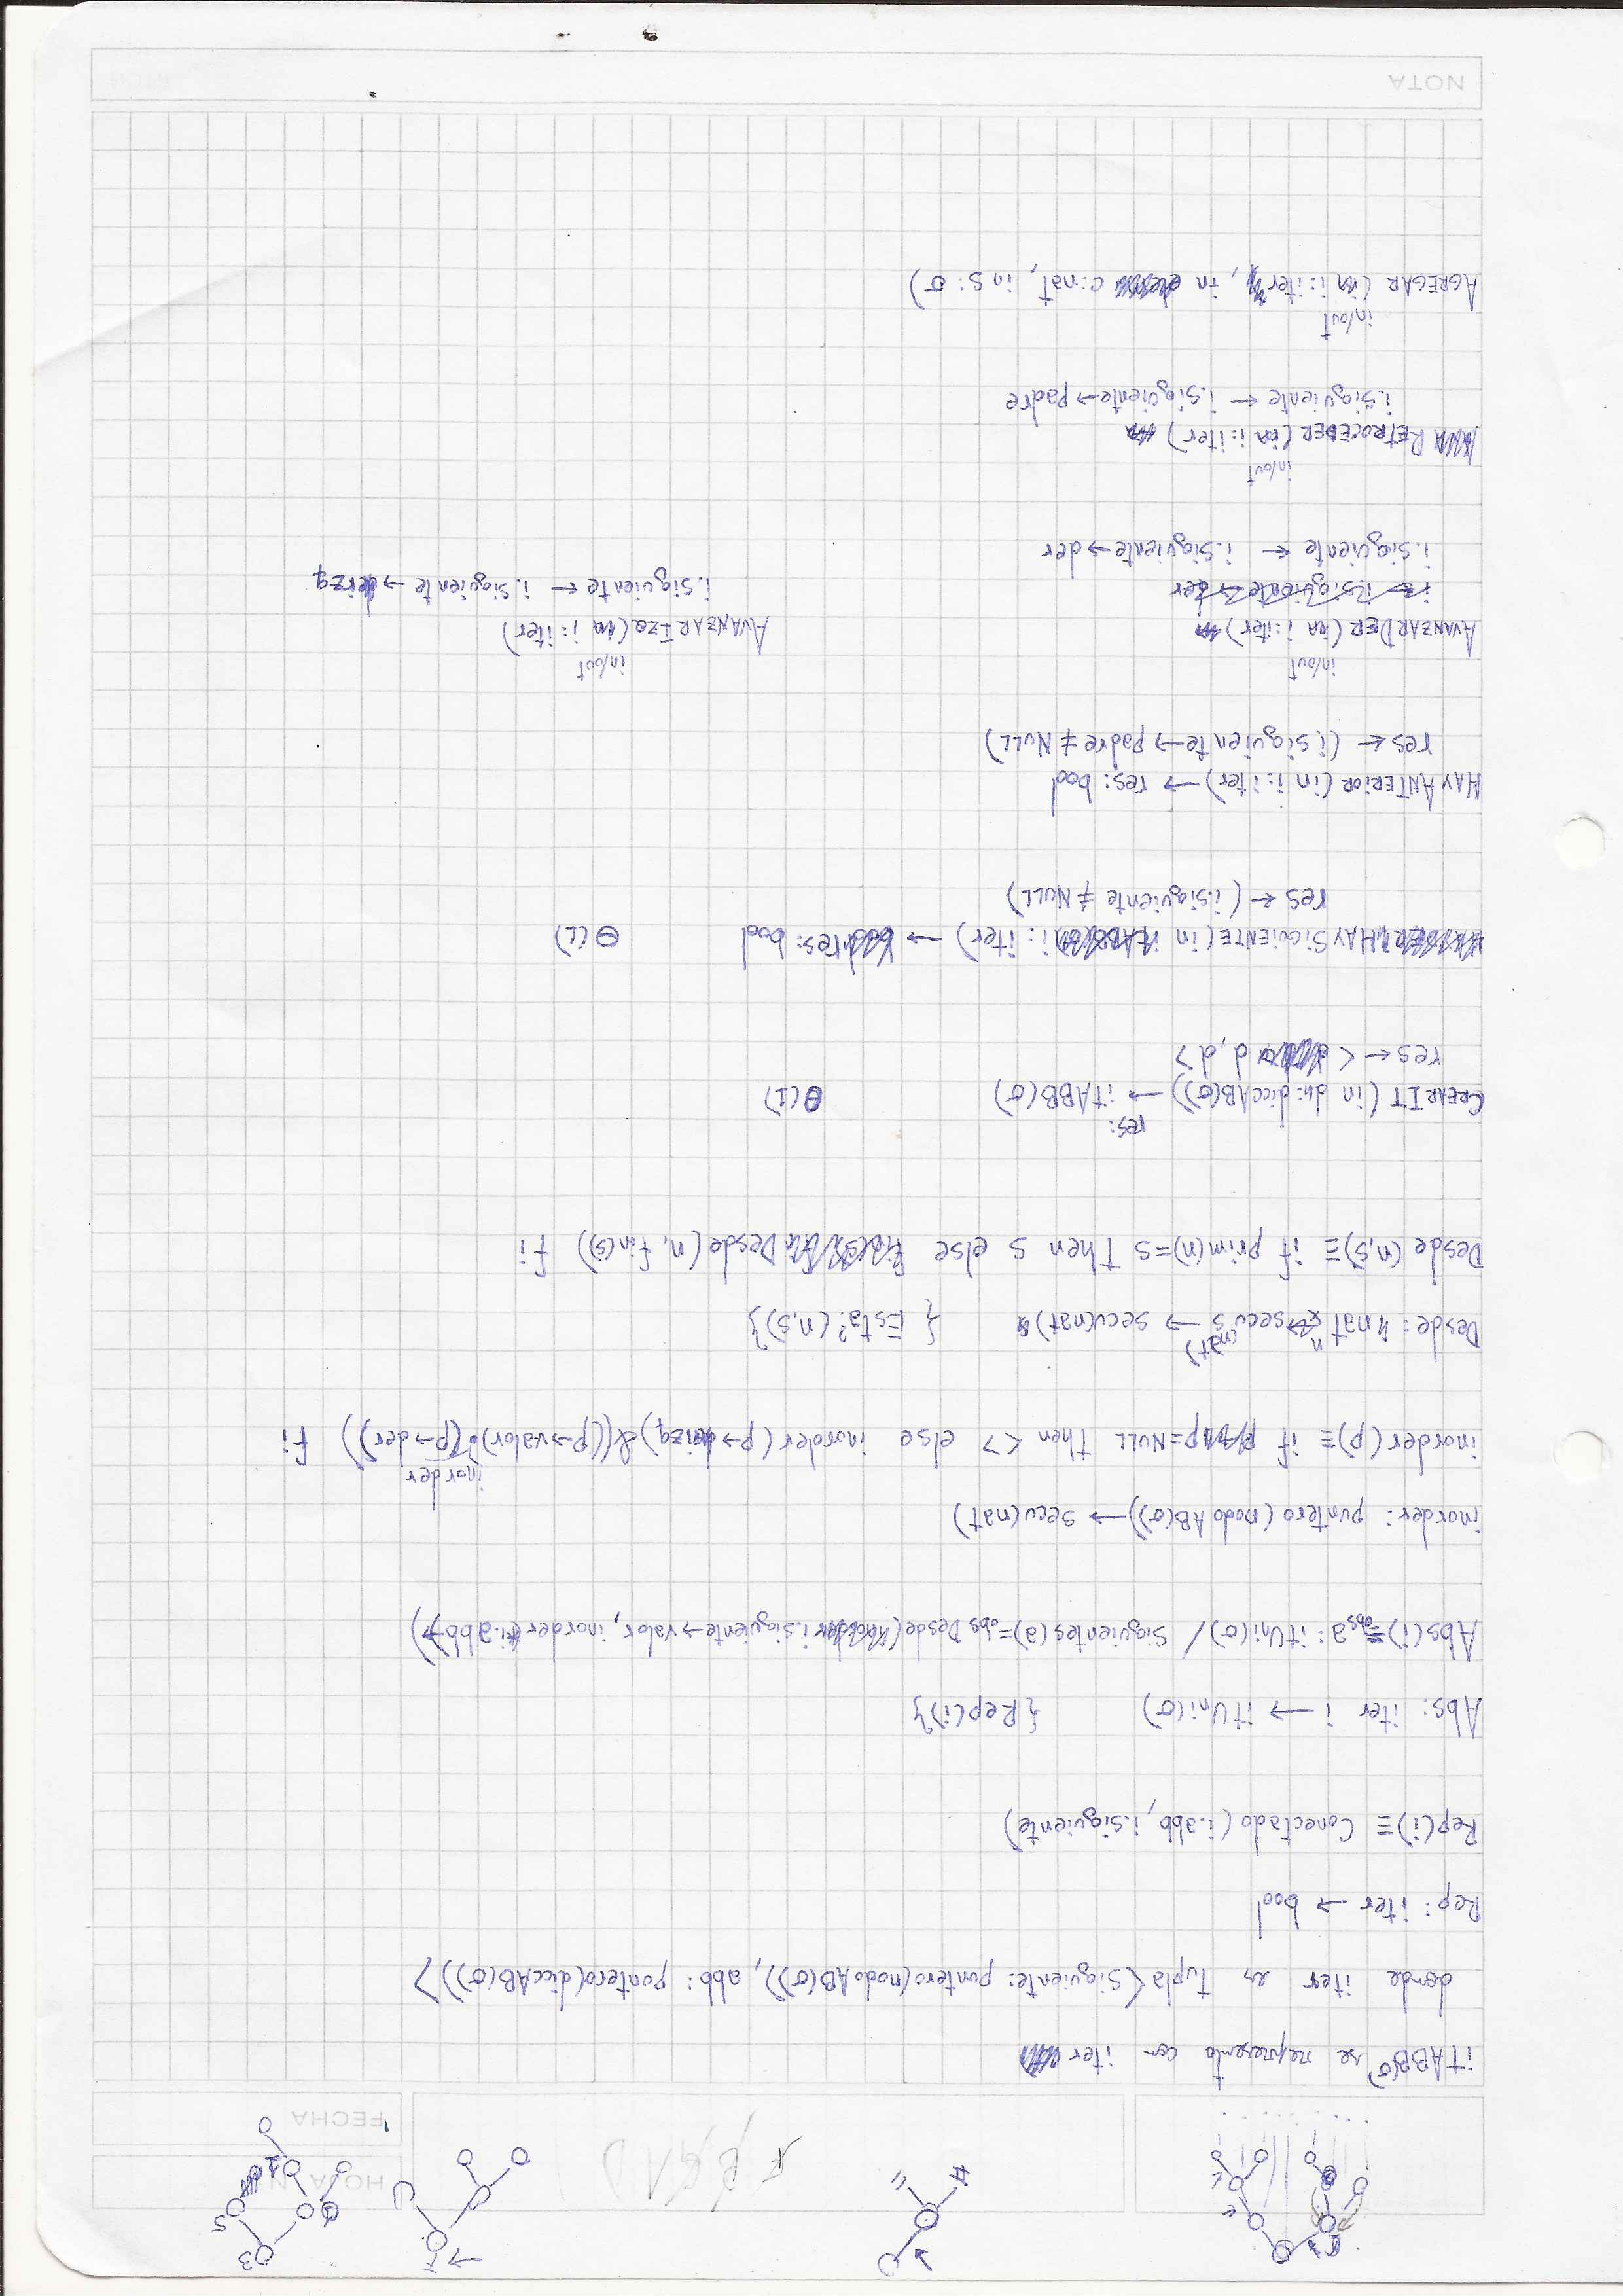 HOJA N
FECHA
itABB(σ) se representa con iter
donde iter es tupla <siguiente: puntero(nodoAB(σ)), abb: puntero(diccAB(σ))>
Rep: iter → bool
Rep(i) ≡ Conectado (i.abb, i.siguiente)
Abs: iter i → itUni(σ) {Rep(i)}
Abs(i) =obs a: itUni(σ) / Siguientes(a) =obs Desde(i.siguiente→valor, inorder(i.abb))
inorder: puntero (nodoAB(σ)) → secu(nat)
inorder(p) ≡ if p=NULL then <> else inorder(p→izq) & ((p→valor) • inorder(p→der)) fi
Desde: nat n secu(nat) s → secu(nat) {Esta?(n,s)}
Desde (n,s) ≡ if prim(n)=s Then s else Desde(n, fin(s)) fi
CREARIT (in d: diccAB(σ)) → res: itABB(σ) Θ(1)
res ← < d, d>
HAYSIGUIENTE (in i: iter) → res: bool Θ(1)
res ← (i.siguiente ≠ NULL)
HAYANTERIOR (in i: iter) → res: bool
res ← (i.siguiente→padre ≠ NULL)
AVANZARDER (in/out i: iter)
i.siguiente ← i.siguiente→der
AVANZARIZQ (in/out i: iter)
i.siguiente ← i.siguiente→izq
RETROCEDER (in/out i: iter)
i.siguiente ← i.siguiente→padre
AGREGAR (in/out i: iter, in c: nat, in s: σ)
NOTA